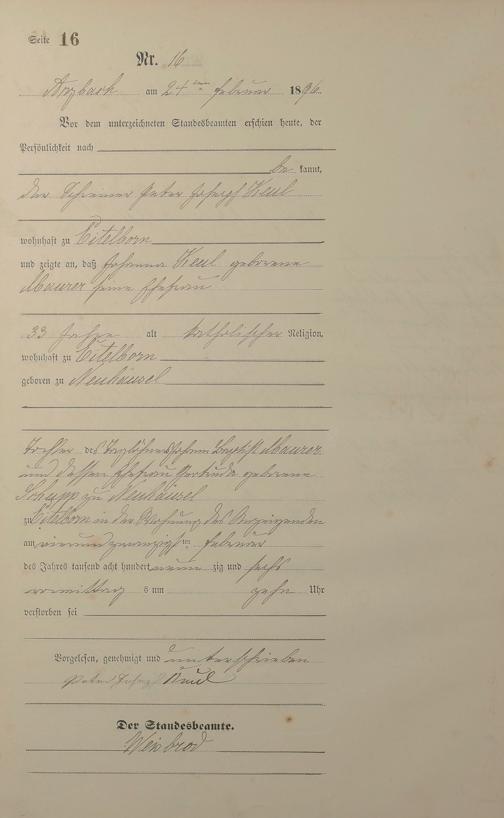 Seite 16
Nr. 16
Arzbach am 24ten Februar 1896
Vor dem unterzeichneten Standesbeamten erschien heute, der
Persönlichkeit nach
be kannt,
der Schreiner Peter Joseph Keul
wohnhaft zu Eitelborn
und zeigte an, daß Johanna Keul geborene
Maurer seine Ehefrau
33 Jahre alt katholischer Religion,
wohnhaft zu Eitelborn
geboren zu Neuhäusel
Tochter des Taglöhners Johann Baptist Maurer
und dessen Ehefrau Gertrude geborene
Schupp zu Neuhäusel
zu Eitelborn in der Wohnung des Anzeigenden
am vierundzwanzigsten Februar
des Jahres tausend acht hundert neun zig und sechs
vormittags um zehn Uhr
verstorben sei
Vorgelesen, genehmigt und unterschrieben
Peter Joseph Keul
Der Standesbeamte.
Weinbrod